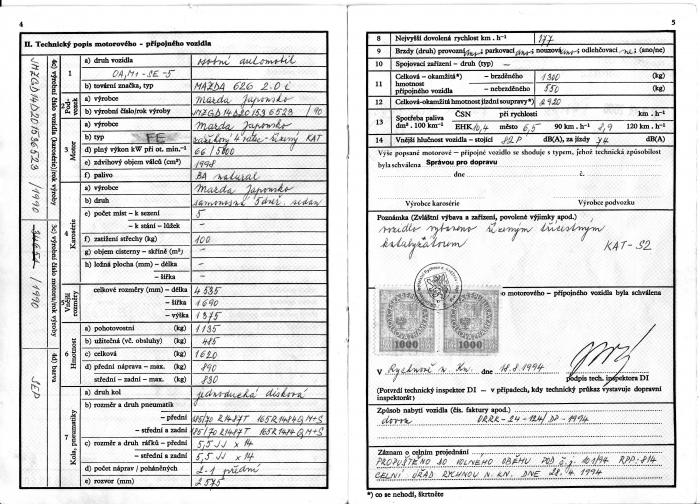 4
II. Technický popis motorového - přípojného vozidla
4e) výrobní číslo vozidla (karosérie)/rok výroby
JMZGD14D201536523 / 1990
5c) výrobní číslo motoru/rok výroby
/ 1990
4d) barva
1
a) druh vozidla osobní automobil
OA, M1 - SE - 5
b) tovární značka, typ MAZDA 626 2.0 i
2 Podvozek
a) výrobce Mazda Japonsko
b) výrobní číslo/rok výroby JMZGD14D201536523 / 90
3 Motor
a) výrobce Mazda Japonsko
b) typ FE
c) druh zážehový 4 řadový řízený KAT
d) plný výkon kW při ot. min.-1 66 / 5000
e) zdvihový objem válců (cm³) 1998
f) palivo BA natural
4 Karosérie
a) výrobce Mazda Japonsko
b) druh samonosná 5dveř. sedan
c) počet míst - k sezení 5
- k stání - lůžek -
f) zatížení střechy (kg) 100
g) objem cisterny - skříně (m³) -
h) ložná plocha (mm) - délka -
- šířka -
5 Vnější rozměry
celkové rozměry (mm) - délka 4535
- šířka 1690
- výška 1375
6 Hmotnost
a) pohotovostní (kg) 1135
b) užitečná (vč. obsluhy) (kg) 485
c) celková (kg) 1620
d) přední náprava - max. (kg) 890
střední - zadní - max. (kg) 830
7 Kola, pneumatiky
a) druh kol jednoduchá disková
b) rozměr a druh pneumatik
- přední 185/70 R14 87T 165R14 84Q M+S
- střední a zadní 185/70 R14 87T 165R14 84Q M+S
c) rozměr a druh ráfků - přední 5,5 JJ x 14
- střední a zadní 5,5 JJ x 14
d) počet náprav / poháněných 2 - 1 přední
e) rozvor (mm) 2575
5
8 Nejvyšší dovolená rychlost km . h-1 177
9 Brzdy (druh) provozní ano; parkovací ano; nouzová ano; odlehčovací ne; (ano/ne)
10 Spojovací zařízení - druh (typ) -
11 Celková - okamžitá*) hmotnost přípojného vozidla
- brzděného 1300 (kg)
- nebrzděného 550 (kg)
12 Celková-okamžitá hmotnost jízdní soupravy*) 2920 (kg)
13 Spotřeba paliva dm³ . 100 km-1
ČSN při rychlosti
EHK 10,4 město 6,5 90 km . h-1 8,9 120 km . h-1
14 Vnější hlučnost vozidla - stojící 82P dB(A), za jízdy 74 dB(A)
Výše popsané motorové - přípojné vozidlo se shoduje s typem, jehož technická způsobilost
byla schválena Správou pro dopravu
dne č.
Výrobce karosérie Výrobce podvozku
Poznámka (Zvláštní výbava a zařízení, povolené výjimky apod.)
vozidlo vybaveno řízeným třícestným
katalyzátorem KAT-S2
o motorového - přípojného vozidla byla schválena
1000 1000
V Rychnově n. Kn. dne 18.8.1994
podpis tech. inspektora DI
(Potvrdí technický inspektor DI - v případech, kdy technický průkaz vystavuje dopravní
inspektorát)
Způsob nabytí vozidla (čís. faktury apod.)
dovoz ORRK-24-124/DP-1994
Záznam o celním projednání
PROPUŠTĚNO DO VOLNÉHO OBĚHU POD č.j. 101/94 RPP-814
CELNÍ ÚŘAD RYCHNOV N. KN. DNE 28.4.1994
*) co se nehodí, škrtněte